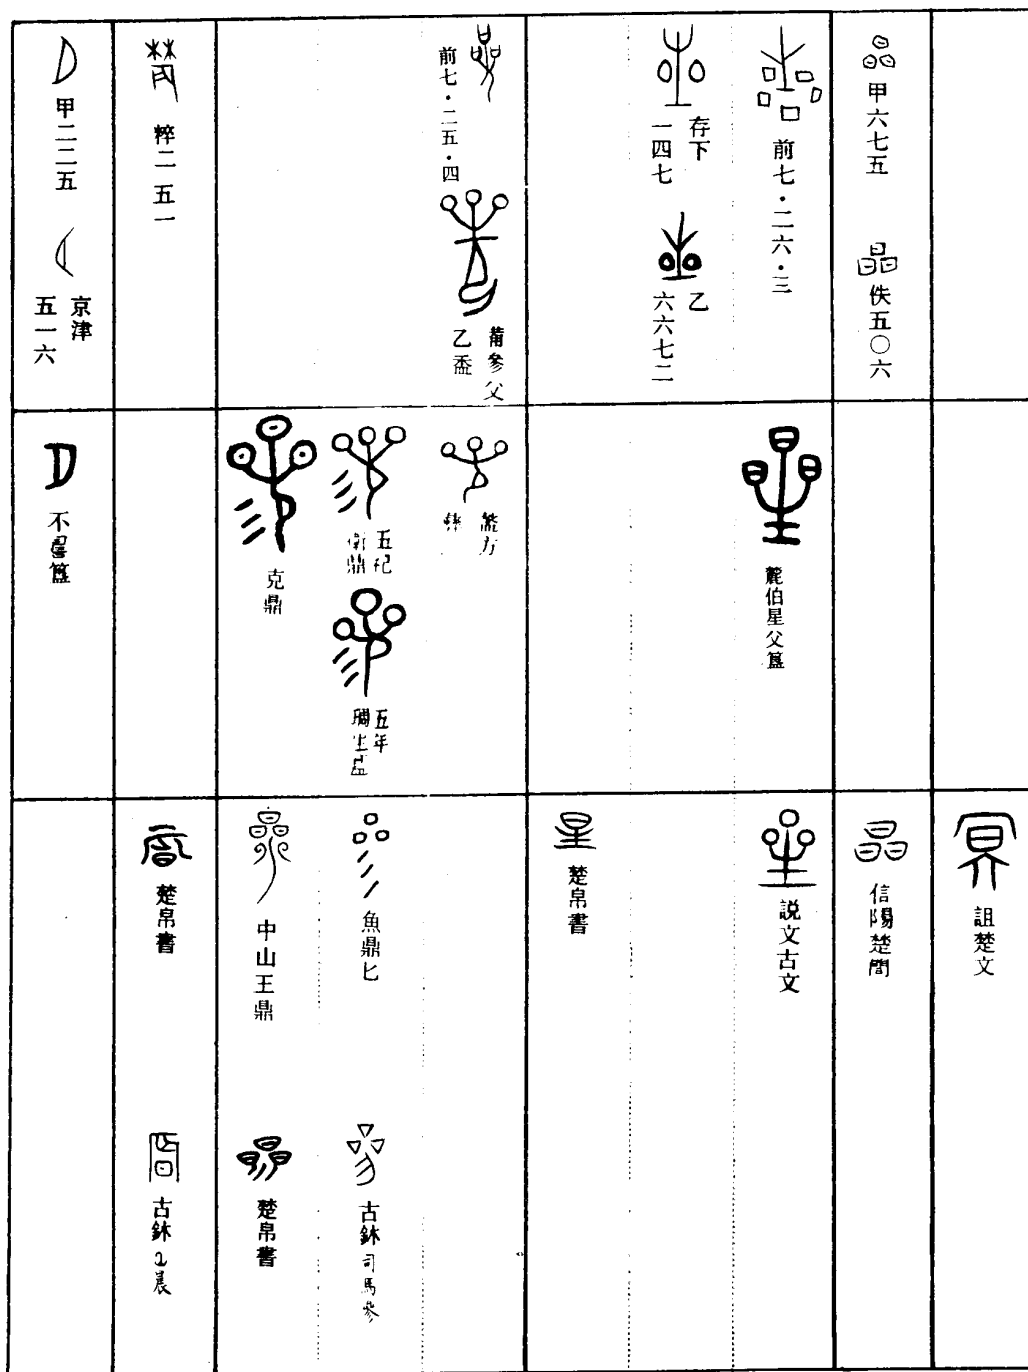 甲六七五
佚五〇六
前七·二六·三
存下
一四七
乙
六六七二
前七·二五·四
葡參父
乙盉
粹二五一
甲二二五
京津
五一六
麓伯星父簋
盠方
彝
五祀
衛鼎
五年
琱生
克鼎
不簋
詛楚文
信陽楚簡
説文古文
楚帛書
魚鼎匕
古鉨司馬參
中山王鼎
楚帛書
楚帛書
古鉨晨